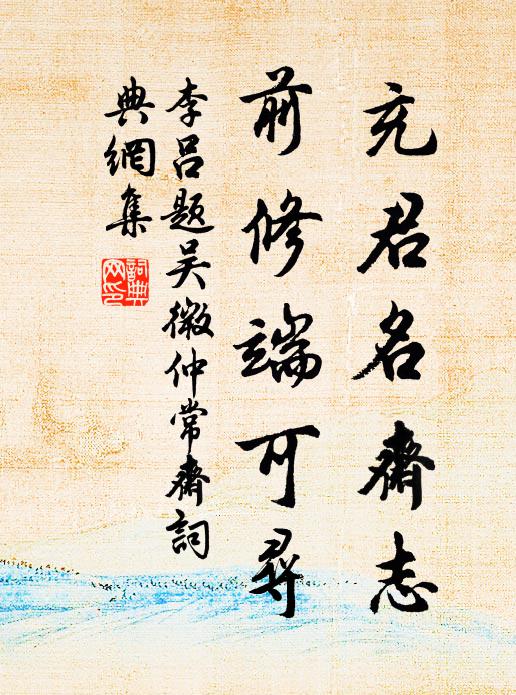 充君名齋志
前修端可尋
李呂題吳微仲常齋詞
典網集
詞典網印